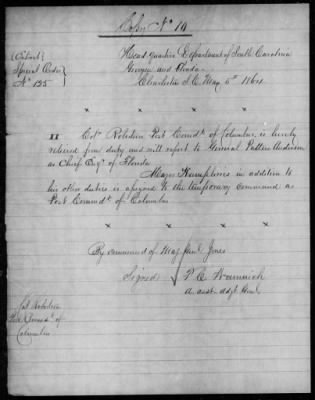 Copy No 10
(Extract)
Special Order
No 135
Head quarters Department of South Carolina
Georgia and Florida
Charleston S.C. May 5th 1864
x x x x
II Col Robertson Post Comdt of Columbus, is hereby
relieved from duty and will report to General Patton Anderson
as Chief of Florida
Major Humphries in addition to
his other duties is assigned to the temporary command as
Post Commdt of Columbus
x x x x
By command of Maj Genl Jones
Signed
A. asst. adjt Genl
Col Robertson
Post Commdt of
Columbus